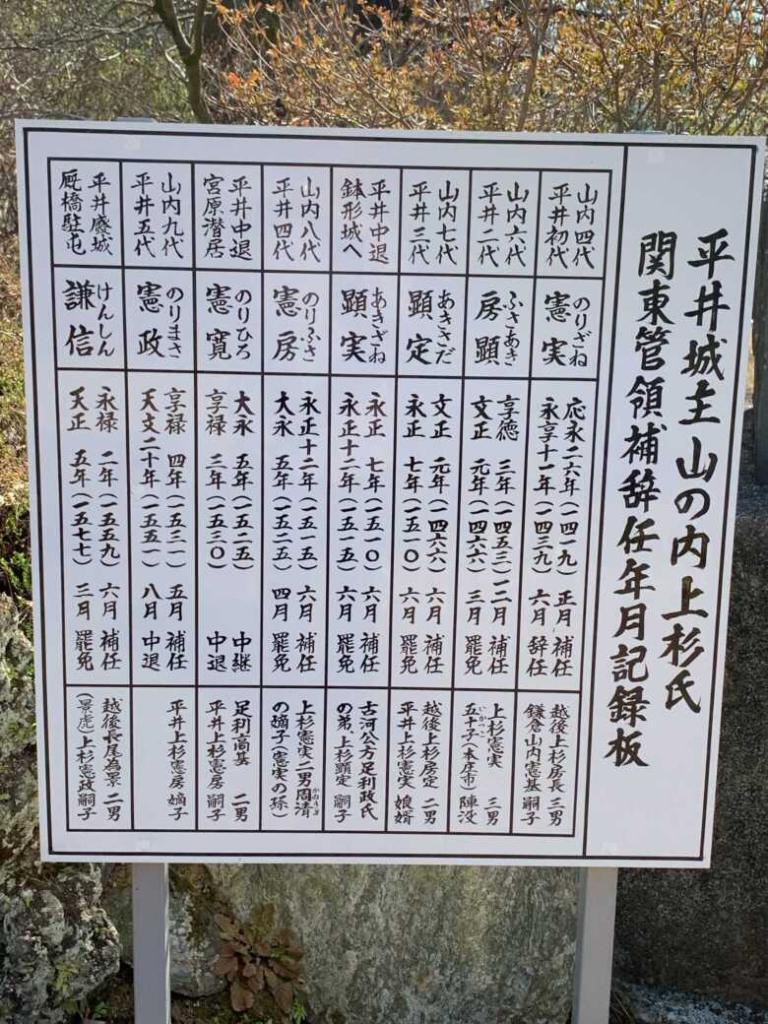 平井城主山の内上杉氏
関東管領補辞任年月記録板
山内四代
平井初代
のりざね
憲実
応永二六年(一四一九)正月 補任
永享十一年(一四三九)六月 辞任
越後上杉房長 三男
鎌倉山内憲基 嗣子
山内六代
平井二代
ふさあき
房顕
享徳 三年(一四五三)一二月 補任
文正 元年(一四六六)三月 罷免
上杉憲実 三男
いかっこ
五十子(本庄市) 陣没
山内七代
平井三代
あきさだ
顕定
文正 元年(一四六六)六月 補任
永正 七年(一五一〇)六月 罷免
越後上杉房定 二男
平井上杉憲実 娘婿
平井中退
鉢形城へ
あきざね
顕実
永正 七年(一五一〇)六月 補任
永正十二年(一五一五)六月 罷免
古河公方足利政氏
の弟、上杉顕定 嗣子
山内八代
平井四代
のりふさ
憲房
永正十二年(一五一五)六月 補任
大永 五年(一五二五)四月 罷免
上杉憲実二男周清
の嫡子(憲実の孫)
平井中退
宮原潜居
のりひろ
憲寛
大永 五年(一五二五) 中継
享禄 三年(一五三〇) 中退
足利高基 二男
平井上杉憲房 嗣子
山内九代
平井五代
のりまさ
憲政
享禄 四年(一五三一)五月 補任
天文二十年(一五五一)八月 中退
平井上杉憲房 嫡子
平井廃城
厩橋駐屯
けんしん
謙信
永禄 二年(一五五九)六月 補任
天正 五年(一五七七)三月 罷免
越後長尾為景 二男
(景虎)上杉憲政嗣子